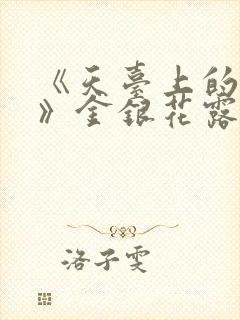 《天臺上的
》金銀花露
洛子雯